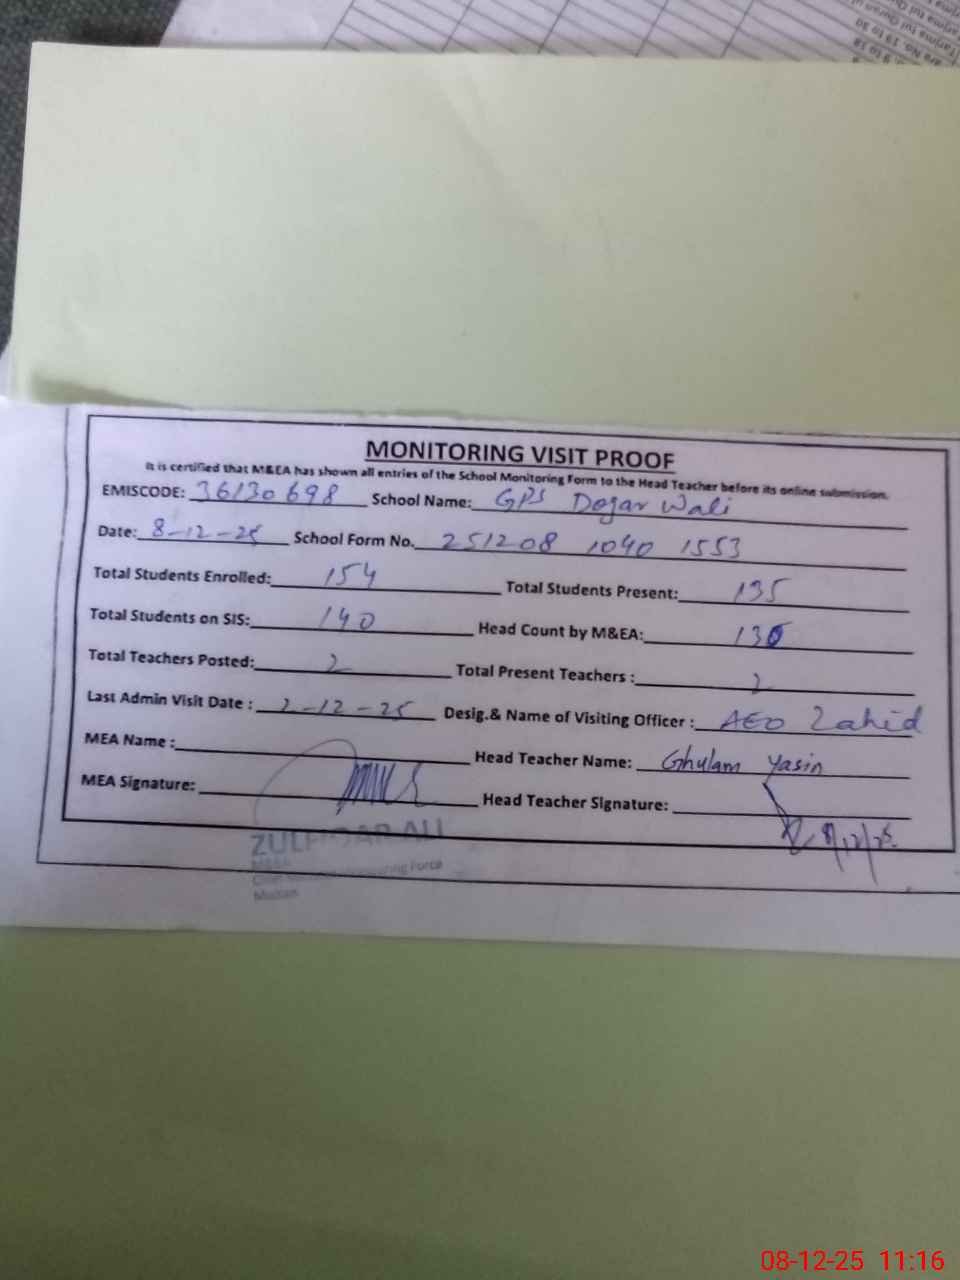 MONITORING VISIT PROOF
It is certified that M&EA has shown all entries of the School Monitoring Form to the Head Teacher before its online submission.
EMISCODE: 36130698 School Name: GPS Dogar Wali
Date: 8-12-25 School Form No. 251208 1040 1553
Total Students Enrolled: 154 Total Students Present: 135
Total Students on SIS: 140 Head Count by M&EA: 135
Total Teachers Posted: 2 Total Present Teachers : 2
Last Admin Visit Date : 2-12-25 Desig.& Name of Visiting Officer : AEO Zahid
MEA Name : Head Teacher Name: Ghulam Yasin
MEA Signature: Head Teacher Signature:
8/12/25
ZULFIQAR ALI
Monitoring Force
Multan
08-12-25 11:16